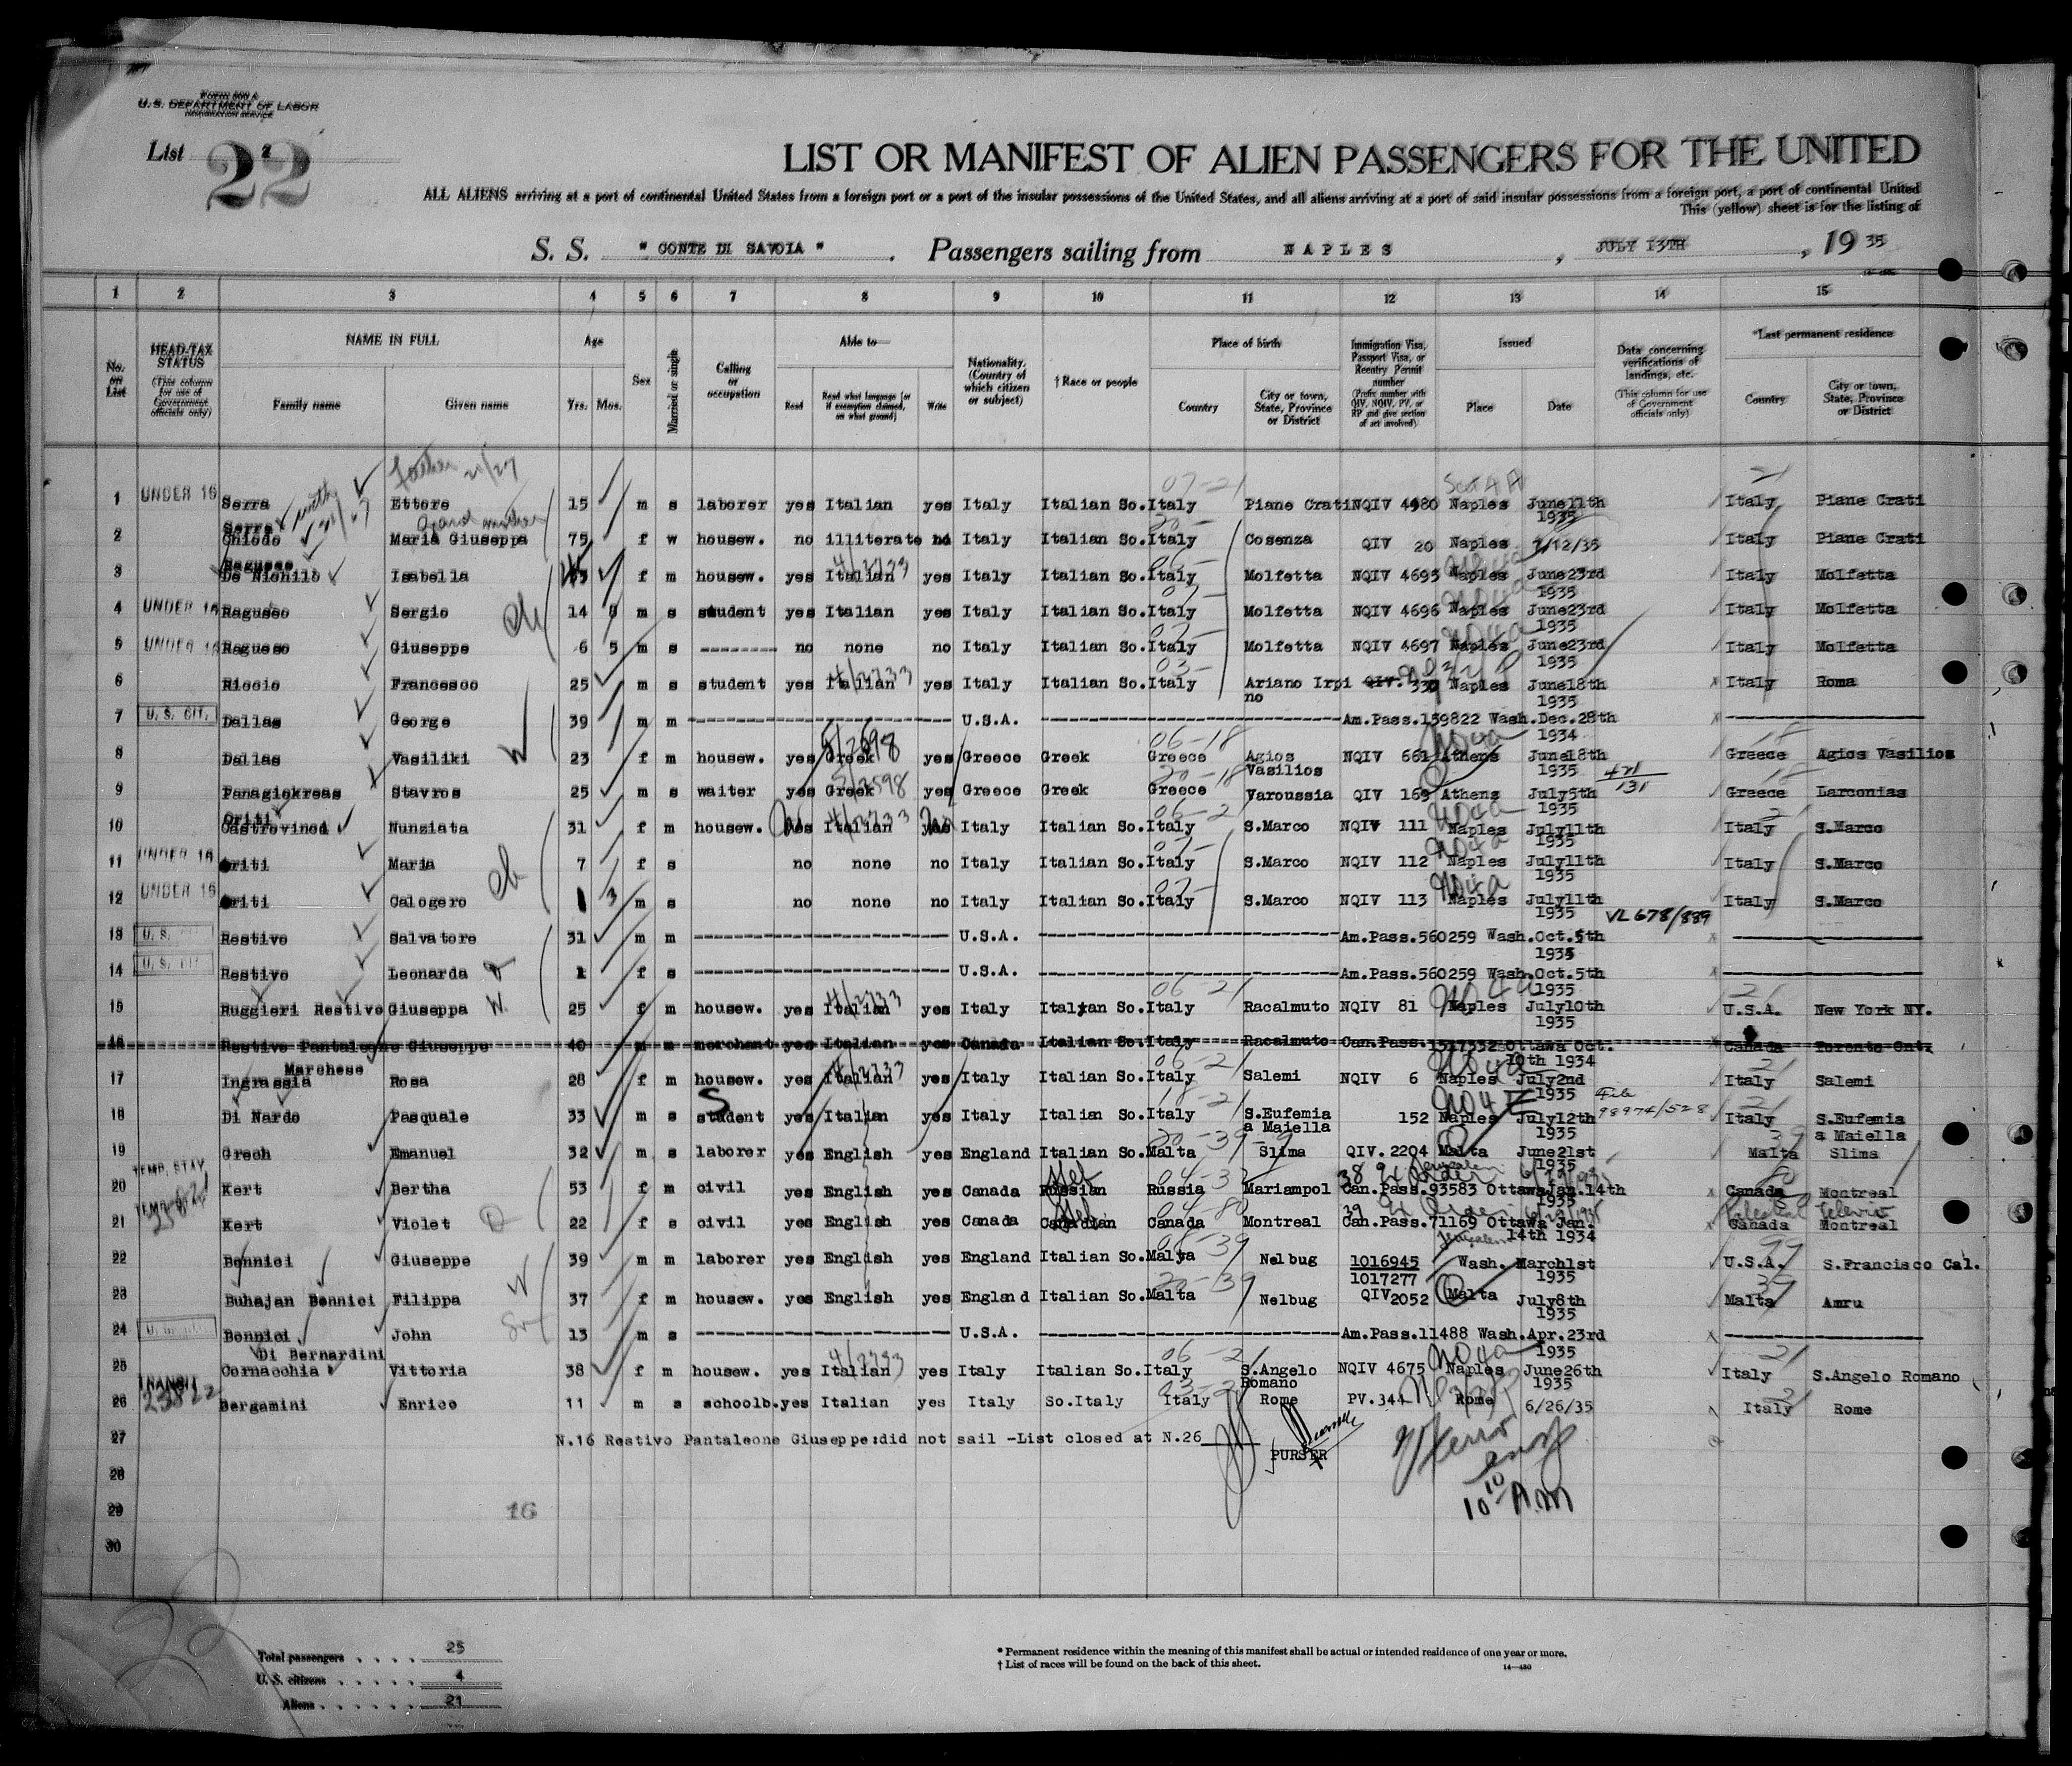 Form 500 A
U. S. DEPARTMENT OF LABOR
IMMIGRATION SERVICE
List 2
22
LIST OR MANIFEST OF ALIEN PASSENGERS FOR THE UNITED
ALL ALIENS arriving at a port of continental United States from a foreign port or a port of the insular possessions of the United States, and all aliens arriving at a port of said insular possessions from a foreign port, a port of continental United
This (yellow) sheet is for the listing of
S. S. " CONTE DI SAVOIA " . Passengers sailing from NAPLES , JULY 13TH , 19 35
1 2 3 4 5 6 7 8 9 10 11 12 13 14 15
No. on List
HEAD-TAX STATUS (This column for use of Government officials only)
NAME IN FULL Family name Given name
Age Yrs. Mos.
Sex
Married or single
Calling or occupation
Able to— Read Read what language [or if exemption claimed, on what ground] Write
Nationality. (Country of which citizen or subject)
† Race or people
Place of birth Country City or town, State, Province or District
Immigration Visa, Passport Visa, or Reentry Permit number (Prefix number with QIV, NQIV, PV, or RP and give section of act involved)
Issued Place Date
Data concerning verifications of landings, etc. (This column for use of Government officials only)
*Last permanent residence Country City or town, State, Province or District
father
1 UNDER 16 Serra Ettore 15 m s laborer yes Italian yes Italy Italian So. Italy Piane Crati NQIV 4980 Naples June11th 1935 Italy Piane Crati
Grand mother
2 Serra Chiodo Maria Giuseppa 75 f w housew. no illiterate no Italy Italian So. Italy Cosenza QIV 20 Naples 7/12/35 Italy Piane Crati
3 Raguseo De Nichilo Isabella f m housew. yes Italian yes Italy Italian So. Italy Molfetta NQIV 4695 Naples June23rd 1935 Italy Molfetta
4 UNDER 16 Raguseo Sergio 14 8 m s student yes Italian yes Italy Italian So. Italy Molfetta NQIV 4696 Naples June23rd 1935 Italy Molfetta
5 UNDER 16 Raguseo Giuseppe 6 5 m s -------- no none no Italy Italian So. Italy Molfetta NQIV 4697 Naples June23rd 1935 Italy Molfetta
6 Riccio Francesco 25 m s student yes Italian yes Italy Italian So. Italy Ariano Irpino QIV. Naples June18th 1935 Italy Roma
7 U. S. CIT. Dallas George 39 m m U.S.A. Am.Pass.159822 Wash.Dec.28th 1934
8 Dallas Vasiliki 23 f m housew. yes Greek yes Greece Greek Greece Agios Vasilios NQIV 661 Athens June18th 1935 Greece Agios Vasilios
9 Panagiokreas Stavros 25 m s waiter yes Greek yes Greece Greek Greece Varoussia QIV 169 Athens July5th 1935 Greece Larconias
10 Oriti Castrovinci Nunziata 31 f m housew. Italian Italy Italian So. Italy S.Marco NQIV 111 Naples July11th 1935 Italy S.Marco
11 UNDER 16 Oriti Maria 7 f s no none no Italy Italian So. Italy S.Marco NQIV 112 Naples July11th 1935 Italy S.Marco
12 UNDER 16 Oriti Calogero 1 3 m s no none no Italy Italian So. Italy S.Marco NQIV 113 Naples July11th 1935 Italy S.Marco
VL 678/889
13 U. S. Restivo Salvatore 31 m m U.S.A. Am.Pass.560259 Wash.Oct.5th 1935
14 U. S. CIT. Restivo Leonarda 1 f s U.S.A. Am.Pass.560259 Wash.Oct.5th 1935
15 Ruggieri Restivo Giuseppa 25 f m housew. yes Italian yes Italy Italian So. Italy Racalmuto NQIV 81 Naples July10th 1935 U.S.A. New York NY.
16 Restivo Pantaleone Giuseppe 40 m m merchant yes Italian yes Canada Italian So. Italy Racalmuto Can.Pass. Ottawa Oct. 10th 1934 Canada Toronto Ont.
17 Marchese Ingrassia Rosa 28 f m housew. yes Italian yes Italy Italian So. Italy Salemi NQIV 6 Naples July2nd 1935 Italy Salemi
18 Di Nardo Pasquale 33 m s student yes Italian yes Italy Italian So. Italy S.Eufemia a Maiella 152 Naples July12th 1935 File 98974/528 Italy S.Eufemia a Maiella
19 Grech Emanuel 32 m s laborer yes English yes England Italian So. Malta Slima QIV. 2204 Malta June21st 1935 Malta Slima
20 TEMP. STAY Kert Bertha 53 f m civil yes English yes Canada Russian Russia Mariampol Can.Pass.93583 Ottawa Jan.14th 1935 Canada Montreal
21 Kert Violet 22 f s civil yes English yes Canada Canadian Canada Montreal Can.Pass.71169 Ottawa Jan. 14th 1934 Canada Montreal
22 Bennici Giuseppe 39 m m laborer yes English yes England Italian So. Malta Nelbug 1016945 1017277 Wash. March1st 1935 U.S.A. S.Francisco Cal.
23 Buhajan Bennici Filippa 37 f m housew. yes English yes England Italian So. Malta Nelbug QIV 2052 Malta July8th 1935 Malta Amru
24 Bennici John 13 m s U.S.A. Am.Pass.11488 Wash.Apr.23rd 1935
25 Di Bernardini Cornacchia Vittoria 38 f m housew. yes Italian yes Italy Italian So. Italy S.Angelo Romano NQIV 4675 Naples June26th 1935 Italy S.Angelo Romano
26 TRANSIT Bergamini Enrico 11 m s schoolb. yes Italian yes Italy So.Italy Italy Rome PV.344 Rome 6/26/35 Italy Rome
27 N.16 Restivo Pantaleone Giuseppe:did not sail -List closed at N.26
PURSER
28
29 16
30
10 10 A.M
22
Total passengers . . . . 25
U. S. citizens . . . . . 4
Aliens . . . . . . . 21
* Permanent residence within the meaning of this manifest shall be actual or intended residence of one year or more.
† List of races will be found on the back of this sheet.
14—430